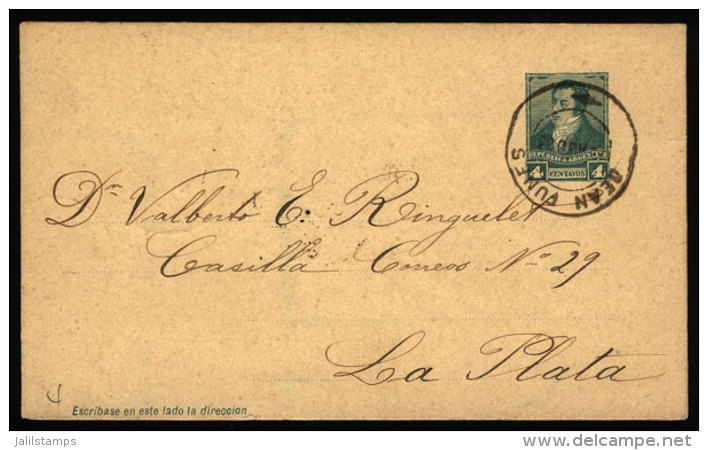 REPÚBLICA ARGENTINA
4 CENTAVOS 4
DEAN FUNES
Dr. Valberto E. Ringuelet
Casilla Correos No 29
La Plata
Escríbase en este lado la direccion
jalilstamps
delcampe.net